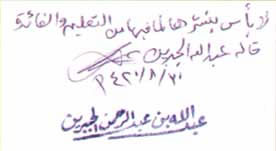 لا بأس بنشرها لما فيها من التعليم والفائدة
قاله عبدالله الجبرين
١٤٢٠/٨/٢٠
عبدالله بن عبدالرحمن الجبرين